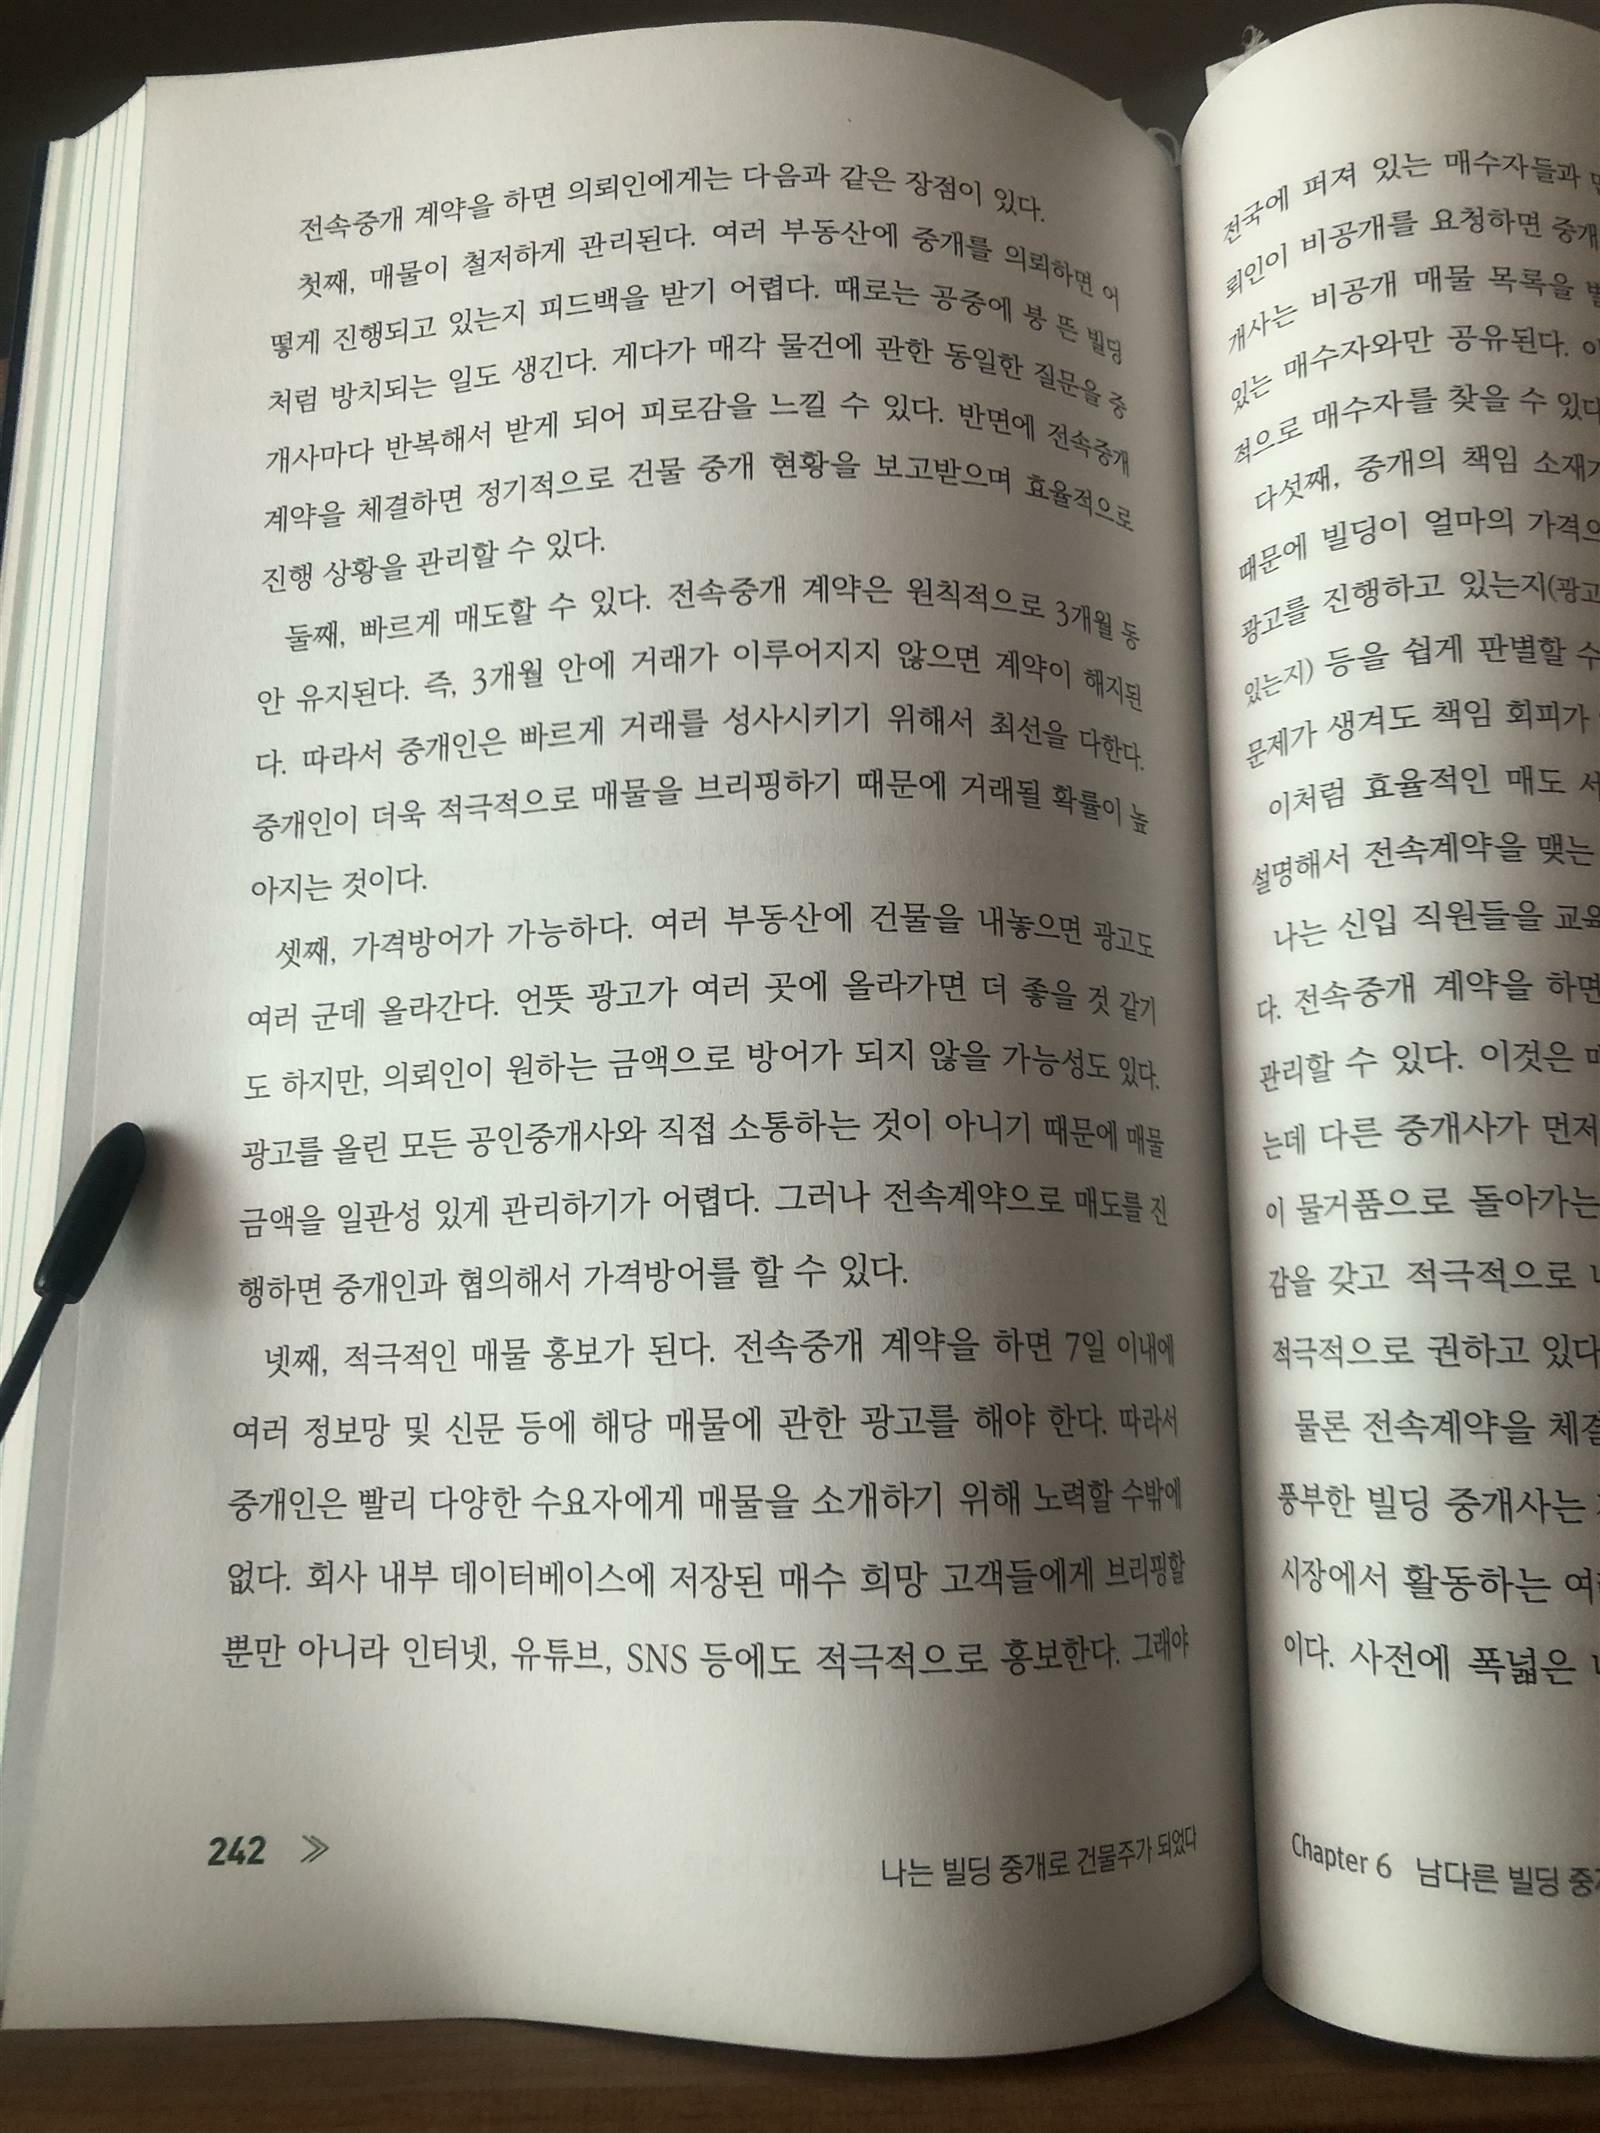 전속중개 계약을 하면 의뢰인에게는 다음과 같은 장점이 있다.
첫째, 매물이 철저하게 관리된다. 여러 부동산에 중개를 의뢰하면 어
떻게 진행되고 있는지 피드백을 받기 어렵다. 때로는 공중에 붕 뜬 빌딩
처럼 방치되는 일도 생긴다. 게다가 매각 물건에 관한 동일한 질문을 중
개사마다 반복해서 받게 되어 피로감을 느낄 수 있다. 반면에 전속중개
계약을 체결하면 정기적으로 건물 중개 현황을 보고받으며 효율적으로
진행 상황을 관리할 수 있다.
둘째, 빠르게 매도할 수 있다. 전속중개 계약은 원칙적으로 3개월 동
안 유지된다. 즉, 3개월 안에 거래가 이루어지지 않으면 계약이 해지된
다. 따라서 중개인은 빠르게 거래를 성사시키기 위해서 최선을 다한다.
중개인이 더욱 적극적으로 매물을 브리핑하기 때문에 거래될 확률이 높
아지는 것이다.
셋째, 가격방어가 가능하다. 여러 부동산에 건물을 내놓으면 광고도
여러 군데 올라간다. 언뜻 광고가 여러 곳에 올라가면 더 좋을 것 같기
도 하지만, 의뢰인이 원하는 금액으로 방어가 되지 않을 가능성도 있다.
광고를 올린 모든 공인중개사와 직접 소통하는 것이 아니기 때문에 매물
금액을 일관성 있게 관리하기가 어렵다. 그러나 전속계약으로 매도를 진
행하면 중개인과 협의해서 가격방어를 할 수 있다.
넷째, 적극적인 매물 홍보가 된다. 전속중개 계약을 하면 7일 이내에
여러 정보망 및 신문 등에 해당 매물에 관한 광고를 해야 한다. 따라서
중개인은 빨리 다양한 수요자에게 매물을 소개하기 위해 노력할 수밖에
없다. 회사 내부 데이터베이스에 저장된 매수 희망 고객들에게 브리핑할
뿐만 아니라 인터넷, 유튜브, SNS 등에도 적극적으로 홍보한다. 그래야
242
나는 빌딩 중개로 건물주가 되었다
전국에 퍼져 있는 매수자들과
뢰인이 비공개를 요청하면 중개
개사는 비공개 매물 목록을
있는 매수자와만 공유된다.
적으로 매수자를 찾을 수 있다
다섯째, 중개의 책임 소재가
때문에 빌딩이 얼마의 가격으
광고를 진행하고 있는지(광고
있는지) 등을 쉽게 판별할 수
문제가 생겨도 책임 회피가
이처럼 효율적인 매도 서
설명해서 전속계약을 맺는
나는 신입 직원들을 교육
다. 전속중개 계약을 하면
관리할 수 있다. 이것은
는데 다른 중개사가 먼저
이 물거품으로 돌아가는
감을 갖고 적극적으로
적극적으로 권하고 있다
물론 전속계약을 체결
풍부한 빌딩 중개사는
시장에서 활동하는 여
이다. 사전에 폭넓은
Chapter 6 남다른 빌딩 중